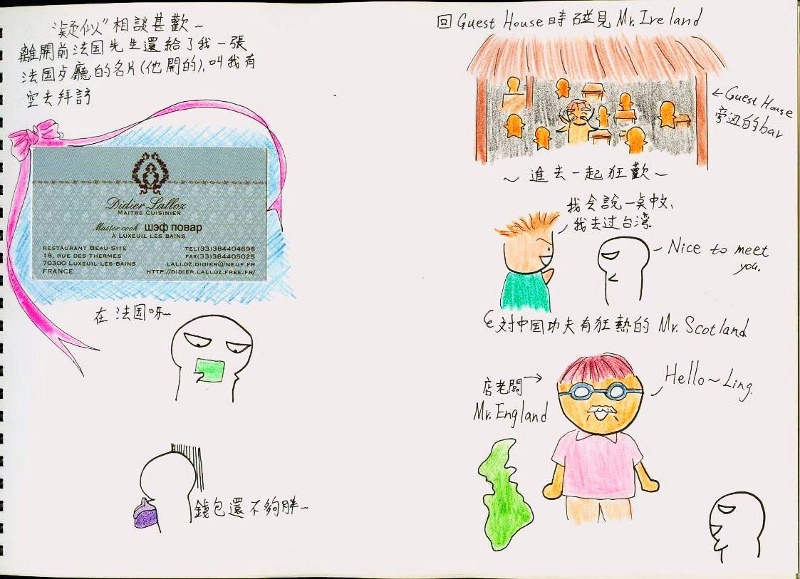 "疑似"相談甚歡~
離開前法国先生還給了我一張
法国歺廳的名片(他開的),叫我有
空去拜訪
Didier Lalloz
MAITRE CUISINIER
Master cook шэф повар
À LUXEUIL LES BAINS
RESTAURANT BEAU-SITE
18, RUE DES THERMES
70300 LUXEUIL LES BAINS
FRANCE
TEL(33)384404696
FAX(33)384405025
LALLOZ.DIDIER@NEUF.FR
HTTP://DIDIER.LALLOZ.FREE.FR/
在法国呀~
錢包還不夠胖~
回Guest House時碰見Mr. Ireland
←Guest House
旁边的bar
~進去一起狂歡~
我会說一桌中文、
我去过台湾.
Nice to meet
you.
對中国功夫有狂熱的 Mr. Scotland
店老闆→
Mr. England
Hello~Ling.